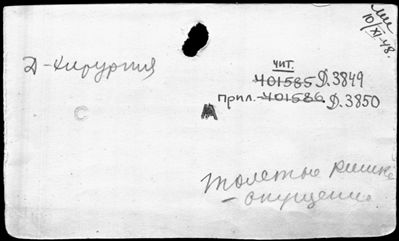 Ми
10/XI-48.
Д-хирургия
чит.
401585 Д.3849
прил. 401586 Д.3850
С
М
толстые кишки
- опущение